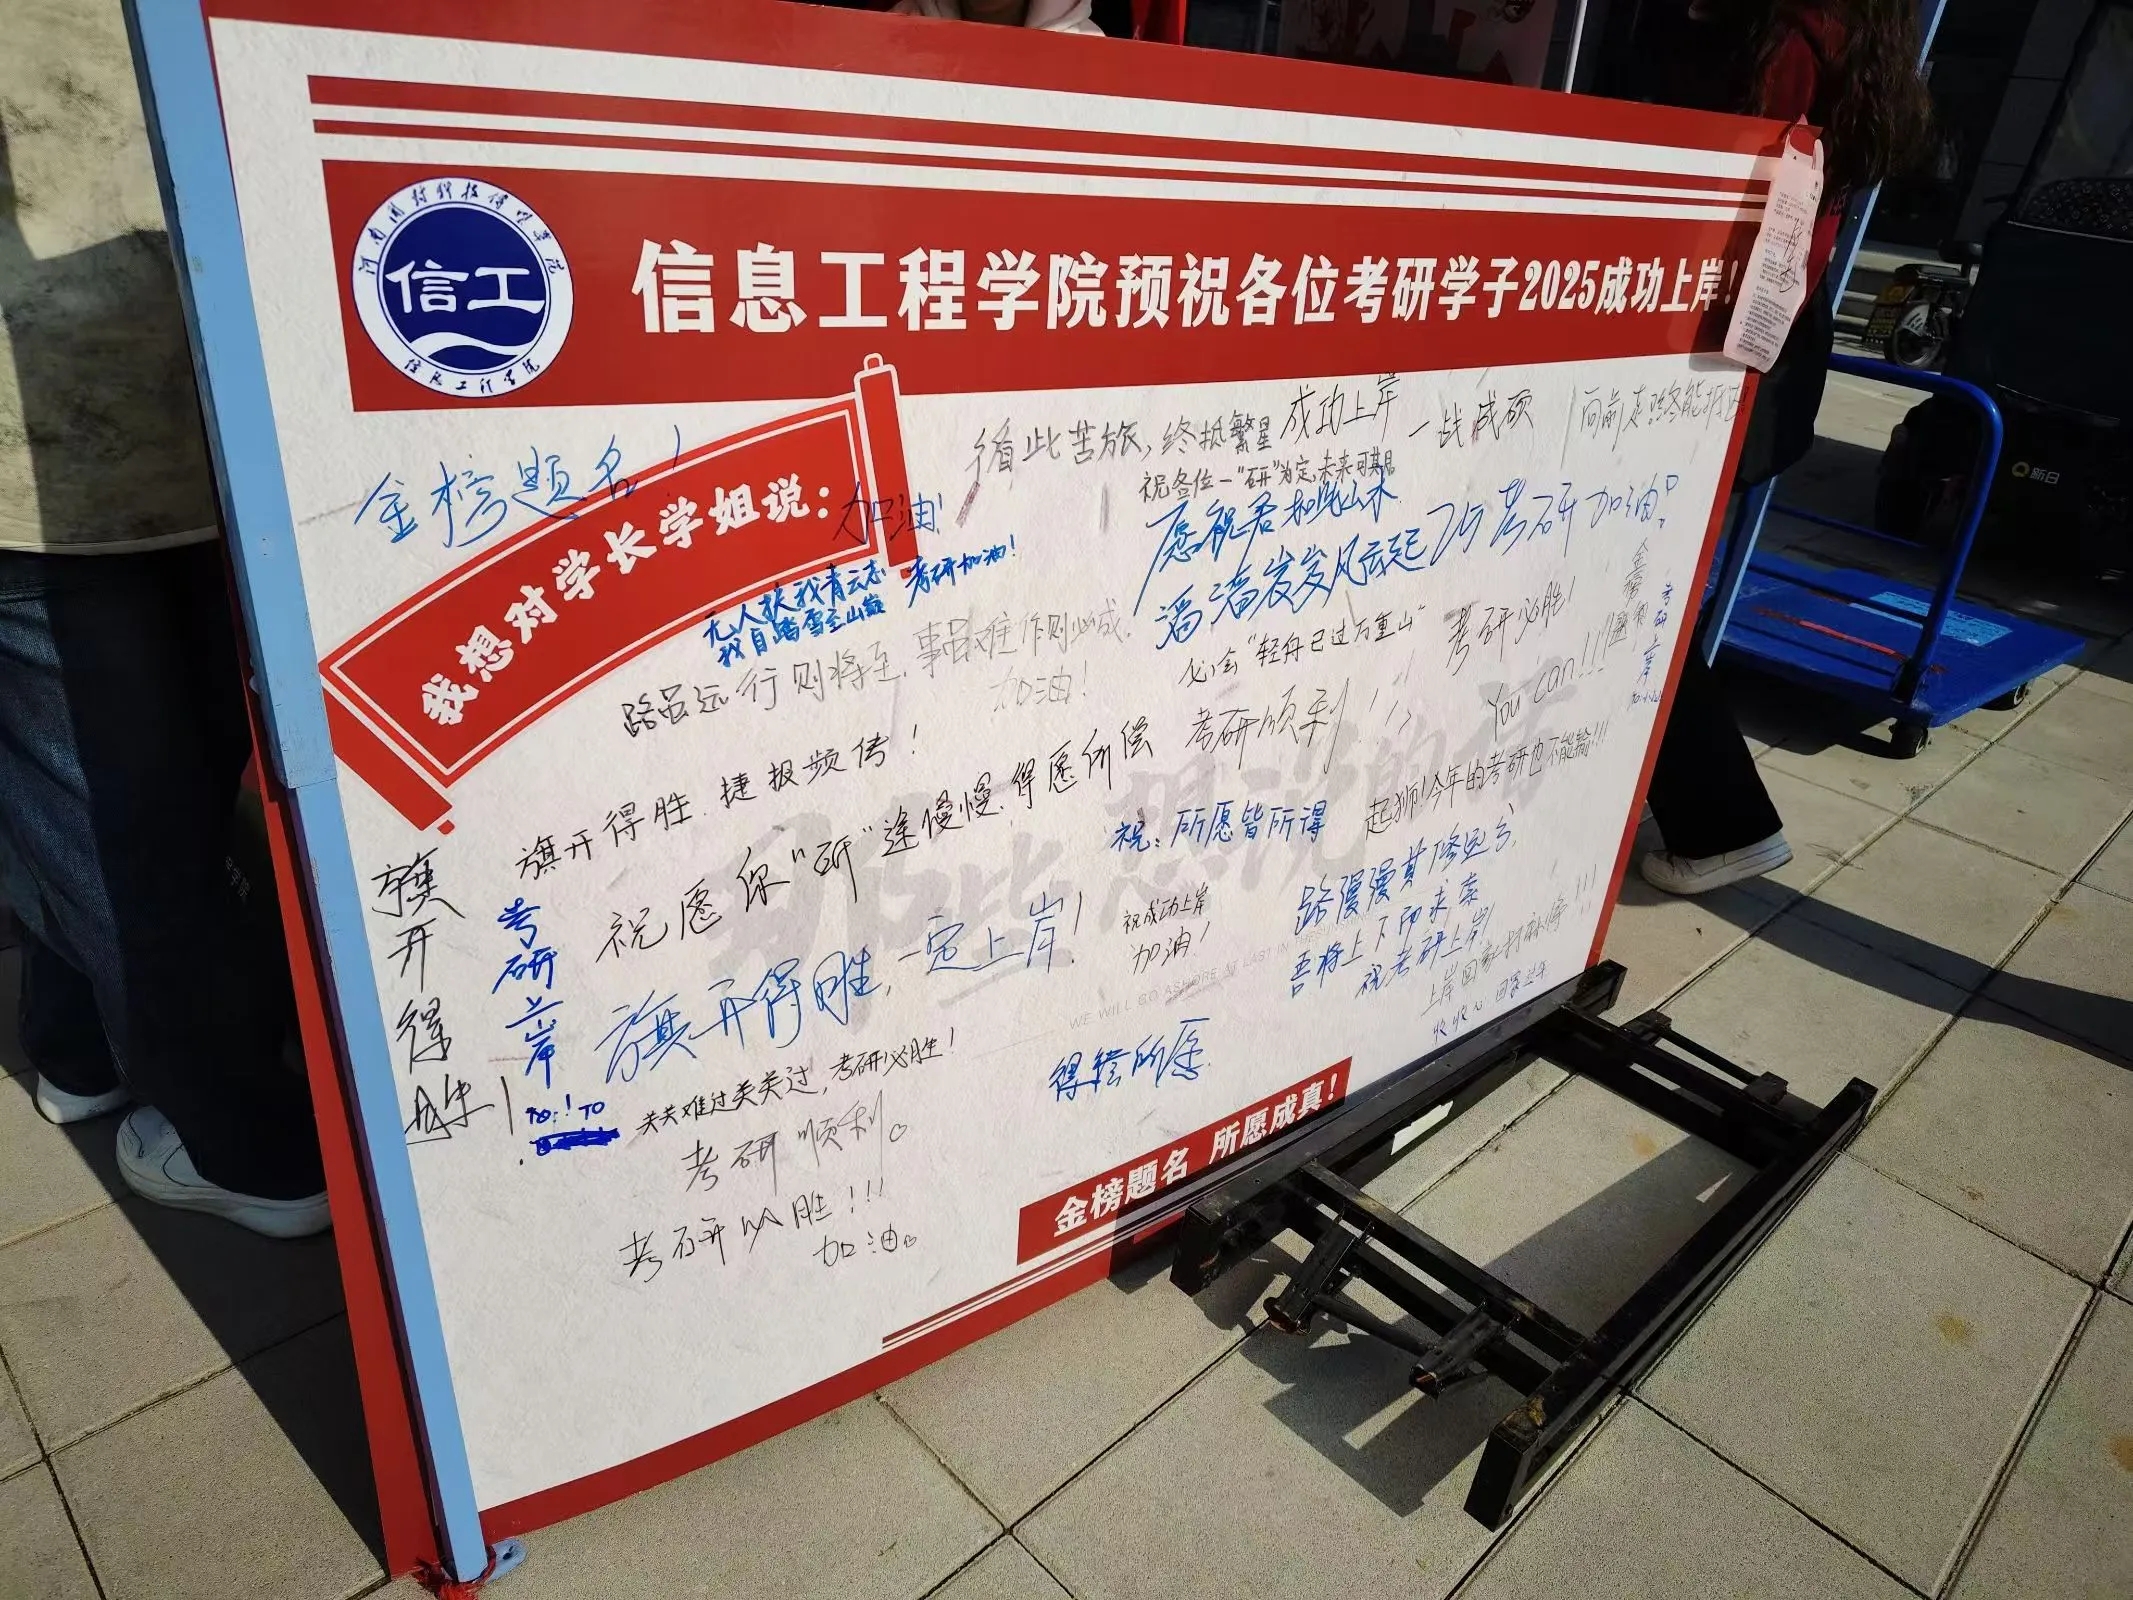 信息工程学院预祝各位考研学子2025成功上岸！
信工
信息工程学院
我想对学长学姐说：
金榜题名！
加油！
循此苦旅，终抵繁星
成功上岸
一战成硕
向前走 终能抵达
祝各位一"研"为定，未来可期
愿祝君如此山水
滔滔岌岌风云起
25考研加油！
无人扶我青云志
我自踏雪至山巅
考研加油！
路虽远行则将至，事虽难作则必成。
加油！
必会"轻舟已过万重山"
考研必胜！
金榜题名
考研上岸
You can!!!
旗开得胜，捷报频传！
考研顺利！！！
祝愿你"研"途慢慢，得愿所偿
祝：所愿皆所得
起狮！今年的考研也不能输！！！
那些想说的话
旗开得胜！
考研上岸
TO
旗开得胜，一定上岸！
祝成功上岸
加油！
路漫漫其修远兮，
吾将上下而求索
祝考研上岸！
上岸回家打麻将！！！
收收心 回家过年
WE WILL GO ASHORE AT LAST IN THE
得偿所愿
关关难过关关过，考研必胜！
考研顺利。
考研必胜！！！
加油。
金榜题名 所愿成真！
新日